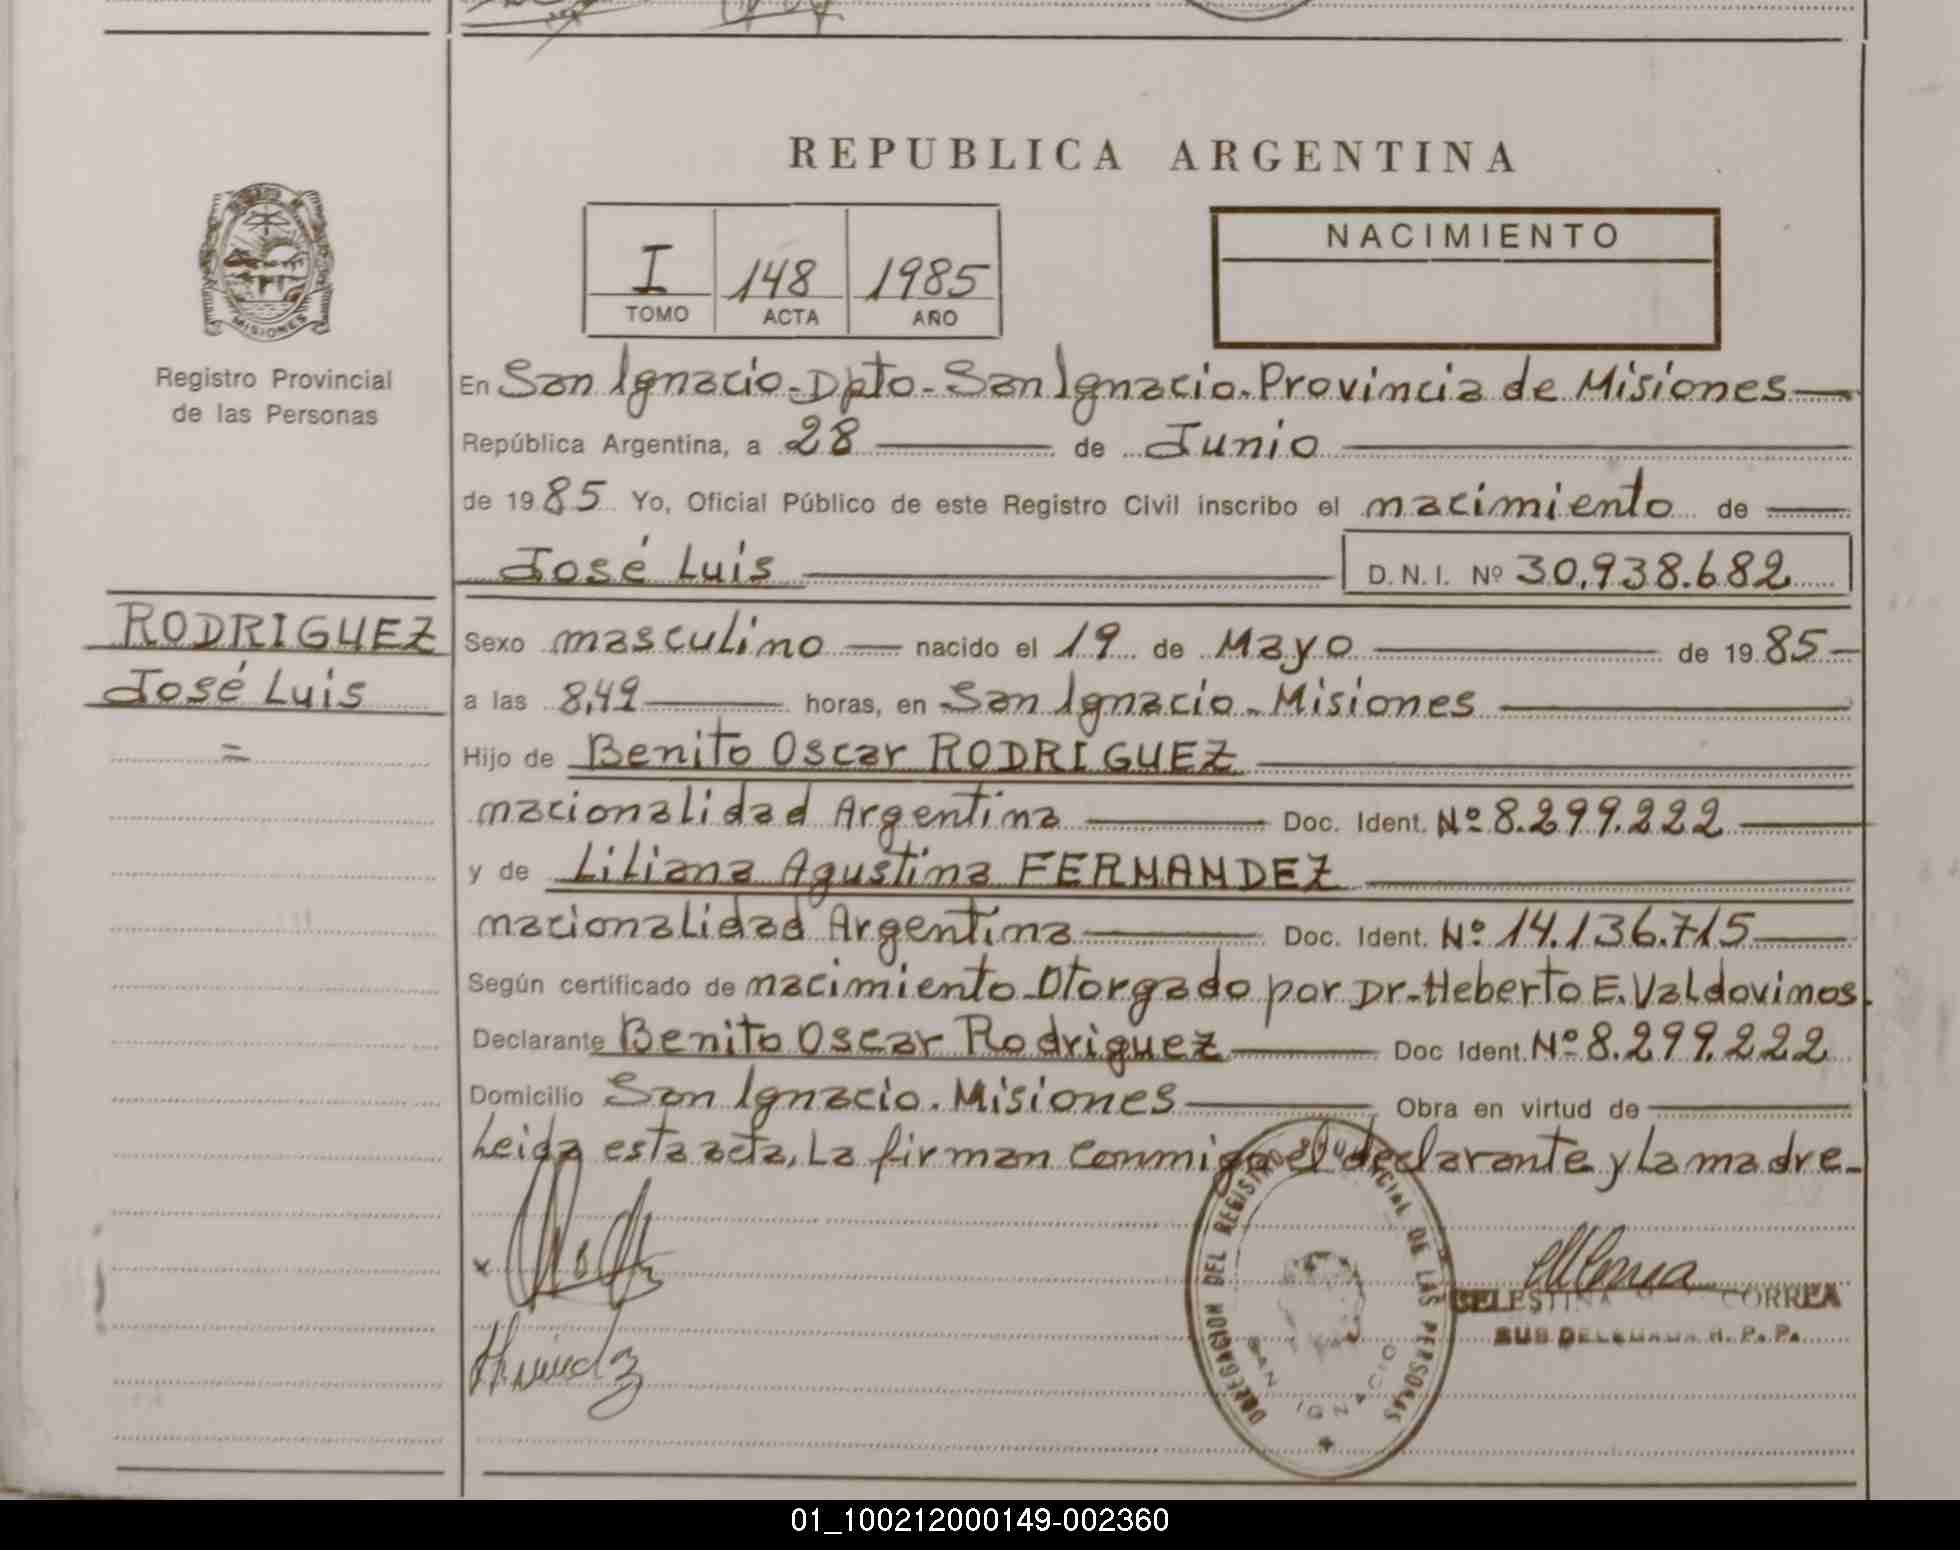 REPUBLICA ARGENTINA
MISIONES
Registro Provincial
de las Personas
I 148 1985
TOMO ACTA AÑO
NACIMIENTO
En San Ignacio-Dpto-San Ignacio-Provincia de Misiones
República Argentina, a 28 de Junio
de 1985 Yo, Oficial Público de este Registro Civil inscribo el nacimiento de
José Luis D.N.I. Nº 30.938.682
RODRIGUEZ
José Luis
=
Sexo masculino nacido el 19 de Mayo de 1985
a las 8,49 horas, en San Ignacio-Misiones
Hijo de Benito Oscar RODRIGUEZ
nacionalidad Argentina Doc. Ident. Nº 8.299.222
y de Liliana Agustina FERNANDEZ
nacionalidad Argentina Doc. Ident. Nº 14.136.715
Según certificado de nacimiento-Otorgado por Dr-Heberto E. Valdovinos.
Declarante Benito Oscar Rodriguez Doc Ident. Nº 8.299.222
Domicilio San Ignacio. Misiones Obra en virtud de
Leida esta acta, La firman conmigo el declarante y la madre-
DELEGACION DEL REGISTRO PROVINCIAL DE LAS PERSONAS
SAN IGNACIO
CELESTINA CORREA
SUB DELEGADA R. P. P.
01_100212000149-002360